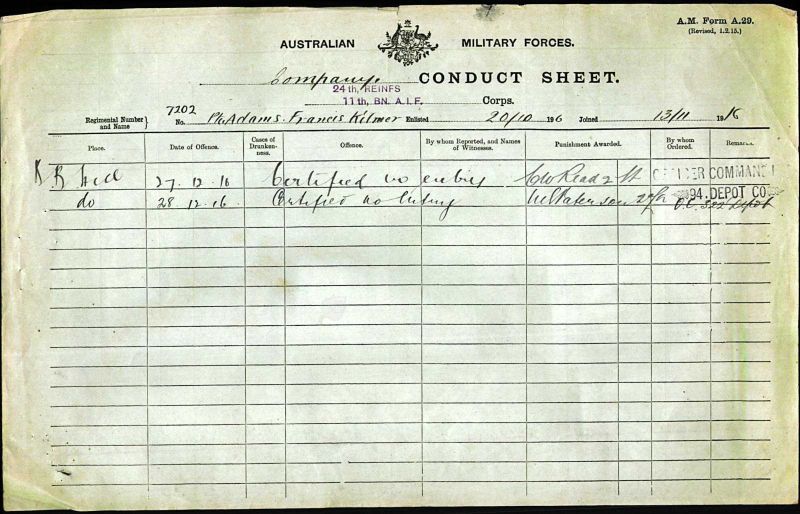 A.M. Form A.29.
(Revised, 1.2.15.)
AUSTRALIAN MILITARY FORCES.
Company. CONDUCT SHEET.
24th, REINFS
11th, BN. A.I.F. Corps.
Regimental Number and Name } No. 7202 Pte Adams. Francis Kilmer Enlisted 20/10 196 Joined 13/11 1916
Place. Date of Offence. Cases of Drunkenness. Offence. By whom Reported, and Names of Witnesses. Punishment Awarded. By whom Ordered. Remarks.
B Hill 27.12.16 Certified no entry Read 2 Lt OFFICER COMMAND
do 28.12.16 Certified no entry Paterson 94. DEPOT CO
O.C. Depot